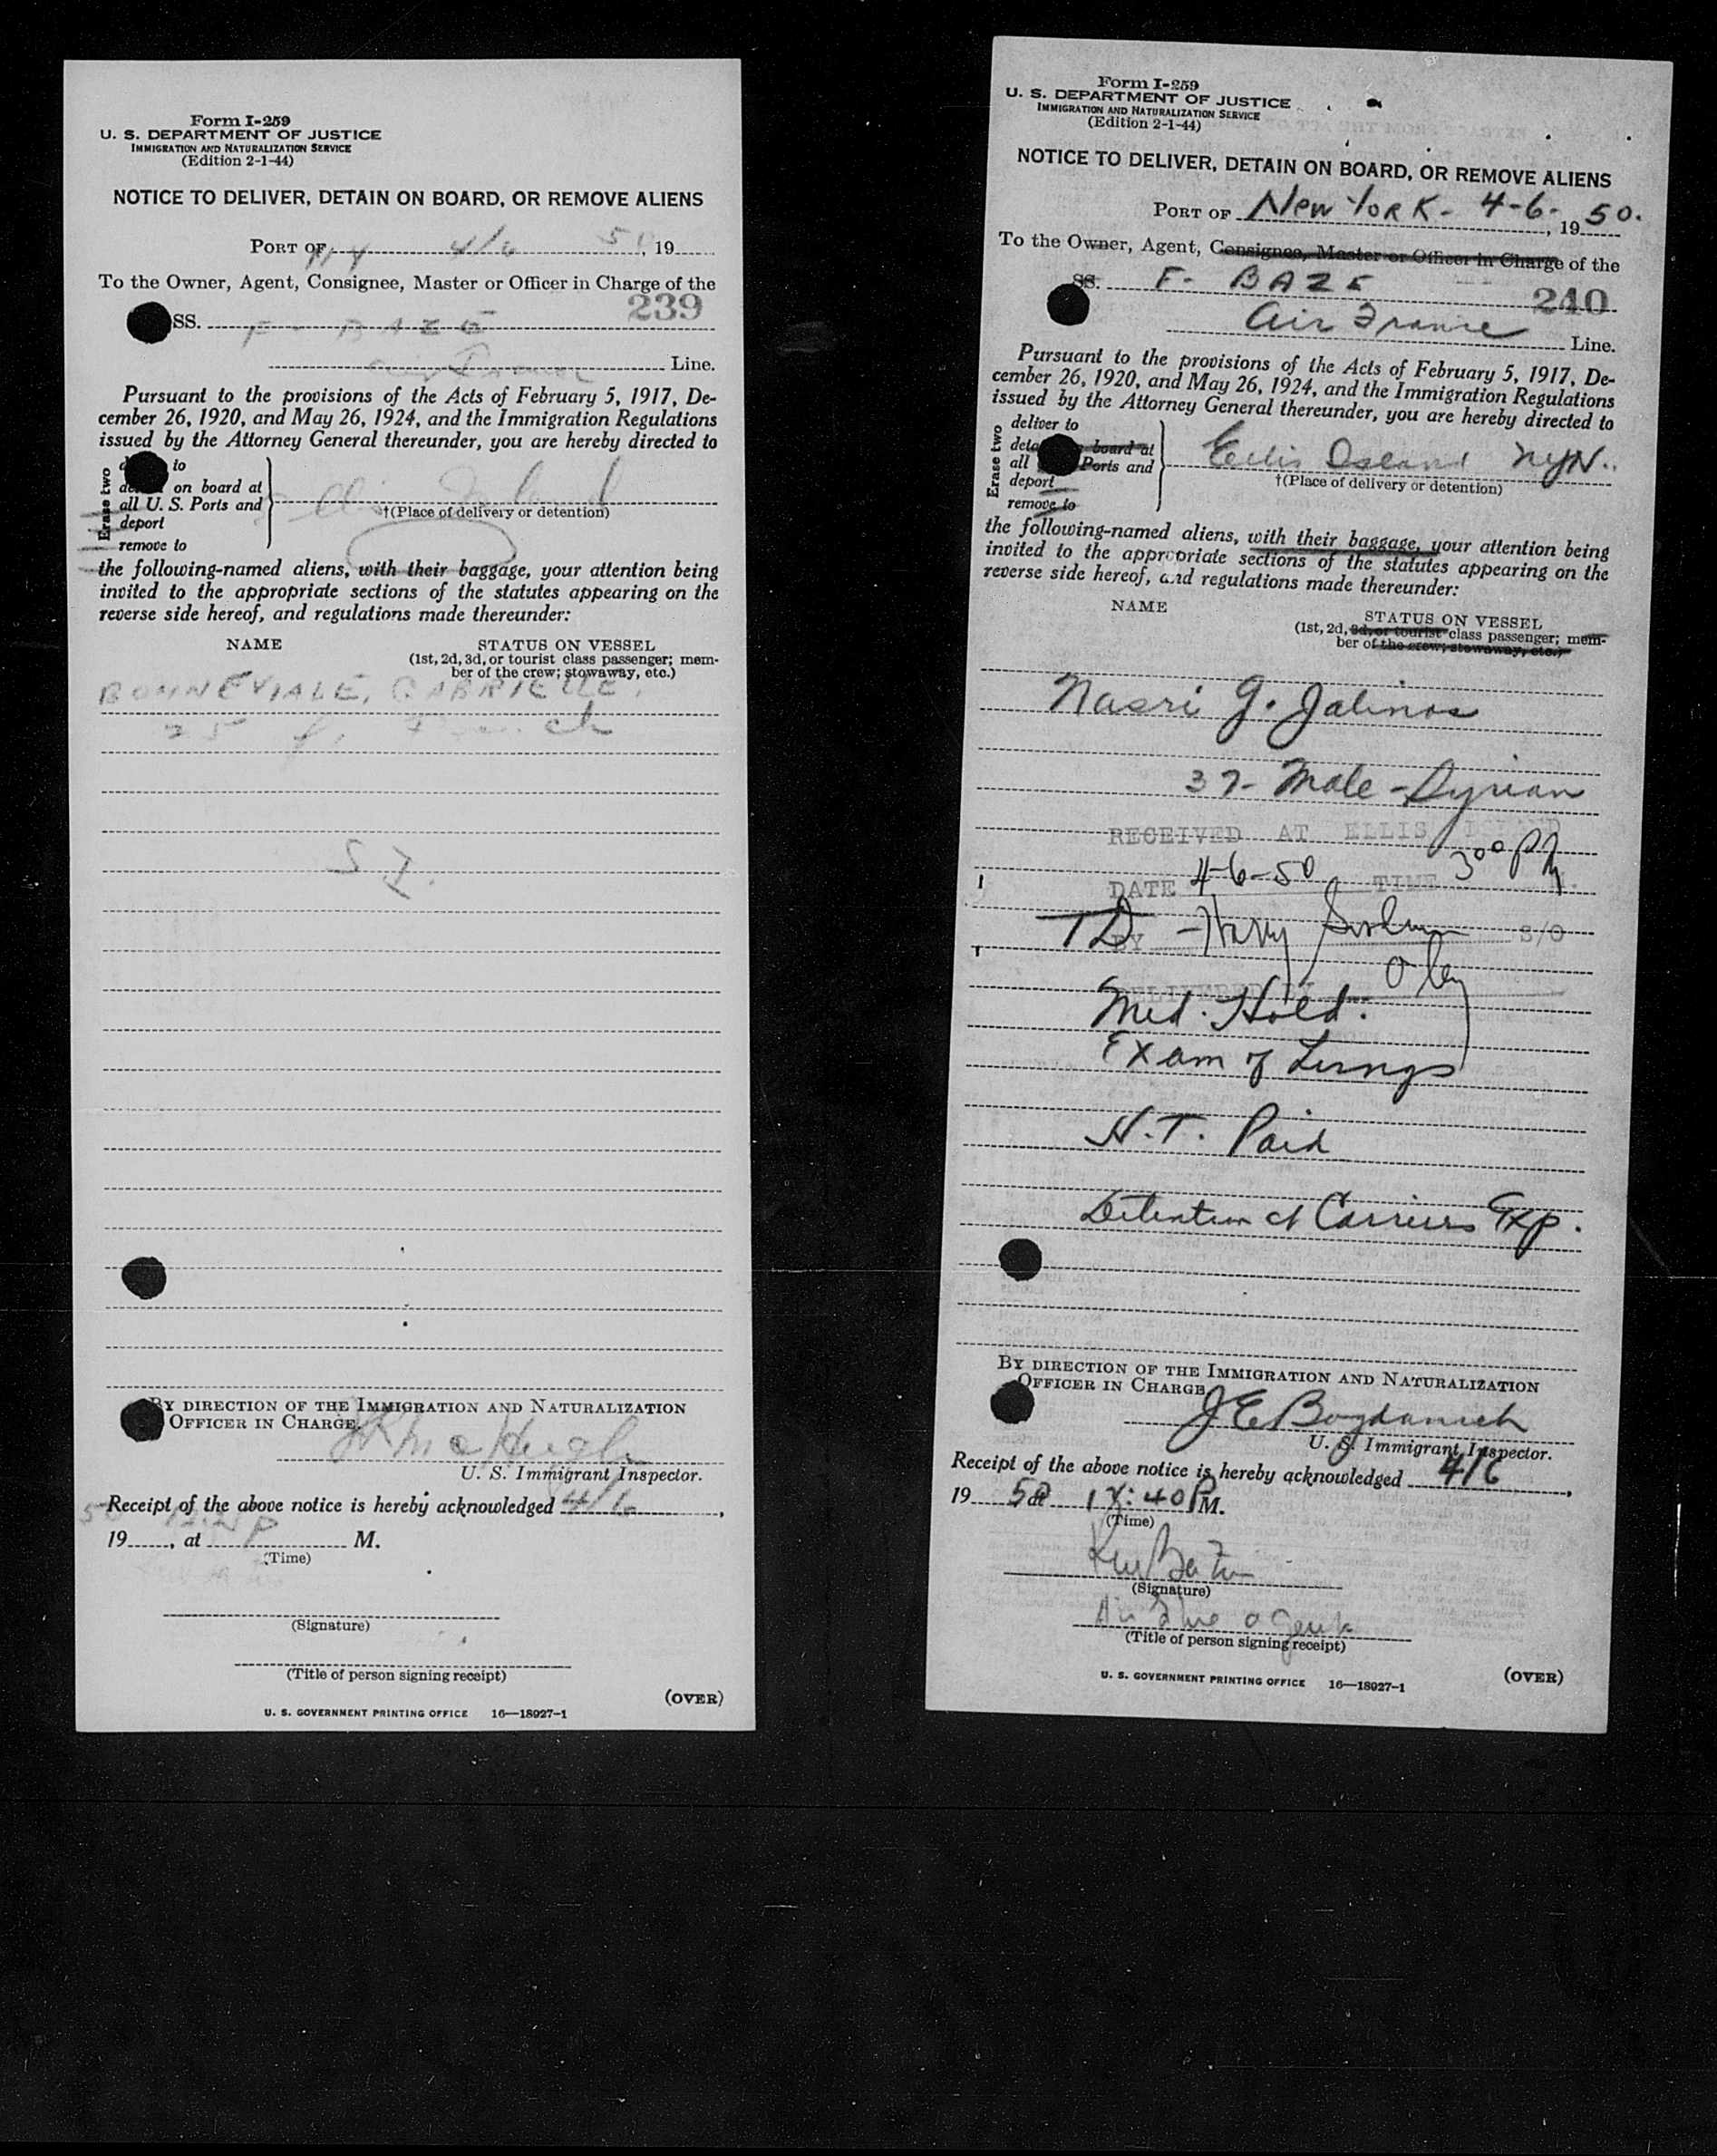 Form I-259
U. S. DEPARTMENT OF JUSTICE
IMMIGRATION AND NATURALIZATION SERVICE
(Edition 2-1-44)
NOTICE TO DELIVER, DETAIN ON BOARD, OR REMOVE ALIENS
PORT OF NY 4/6 50, 19
To the Owner, Agent, Consignee, Master or Officer in Charge of the
239
SS. F - BAZE
Air France Line.
Pursuant to the provisions of the Acts of February 5, 1917, De-
cember 26, 1920, and May 26, 1924, and the Immigration Regulations
issued by the Attorney General thereunder, you are hereby directed to
Erase two
to
on board at
all U. S. Ports and
deport
remove to
Ellis Island
†(Place of delivery or detention)
the following-named aliens, with their baggage, your attention being
invited to the appropriate sections of the statutes appearing on the
reverse side hereof, and regulations made thereunder:
NAME
STATUS ON VESSEL
(1st, 2d, 3d, or tourist class passenger; mem-
ber of the crew; stowaway, etc.)
BONNEVIALE, GABRIELLE.
25 f. French
S I.
BY DIRECTION OF THE IMMIGRATION AND NATURALIZATION
OFFICER IN CHARGE.
U. S. Immigrant Inspector.
Receipt of the above notice is hereby acknowledged 4/6,
50
19, at M.
(Time)
(Signature)
(Title of person signing receipt)
(OVER)
U. S. GOVERNMENT PRINTING OFFICE 16—18927-1
Form I-259
U. S. DEPARTMENT OF JUSTICE
IMMIGRATION AND NATURALIZATION SERVICE
(Edition 2-1-44)
NOTICE TO DELIVER, DETAIN ON BOARD, OR REMOVE ALIENS
PORT OF New York - 4-6-, 19 50.
To the Owner, Agent, Consignee, Master or Officer in Charge of the
SS. F - BAZE
240
Air France Line.
Pursuant to the provisions of the Acts of February 5, 1917, De-
cember 26, 1920, and May 26, 1924, and the Immigration Regulations
issued by the Attorney General thereunder, you are hereby directed to
Erase two
deliver to
board at
all Ports and
deport
remove to
Ellis Island NYN.
†(Place of delivery or detention)
the following-named aliens, with their baggage, your attention being
invited to the appropriate sections of the statutes appearing on the
reverse side hereof, and regulations made thereunder:
NAME
STATUS ON VESSEL
(1st, 2d, 3d, or tourist class passenger; mem-
ber of the crew; stowaway, etc.)
Nasri G. Jalinos
37- Male - Syrian
RECEIVED AT ELLIS ISLAND
DATE 4-6-50 TIME 3 00 PM
TD BY Harry S/O
DELIVERED BY
Med. Hold.
Exam of Lungs
H.T. Paid
Detention at Carriers Exp.
BY DIRECTION OF THE IMMIGRATION AND NATURALIZATION
OFFICER IN CHARGE
J E Bogdanich
U. S. Immigrant Inspector.
Receipt of the above notice is hereby acknowledged 4/6,
19 50 at 12:40 P M.
(Time)
(Signature)
(Title of person signing receipt)
U. S. GOVERNMENT PRINTING OFFICE 16—18927-1
(OVER)